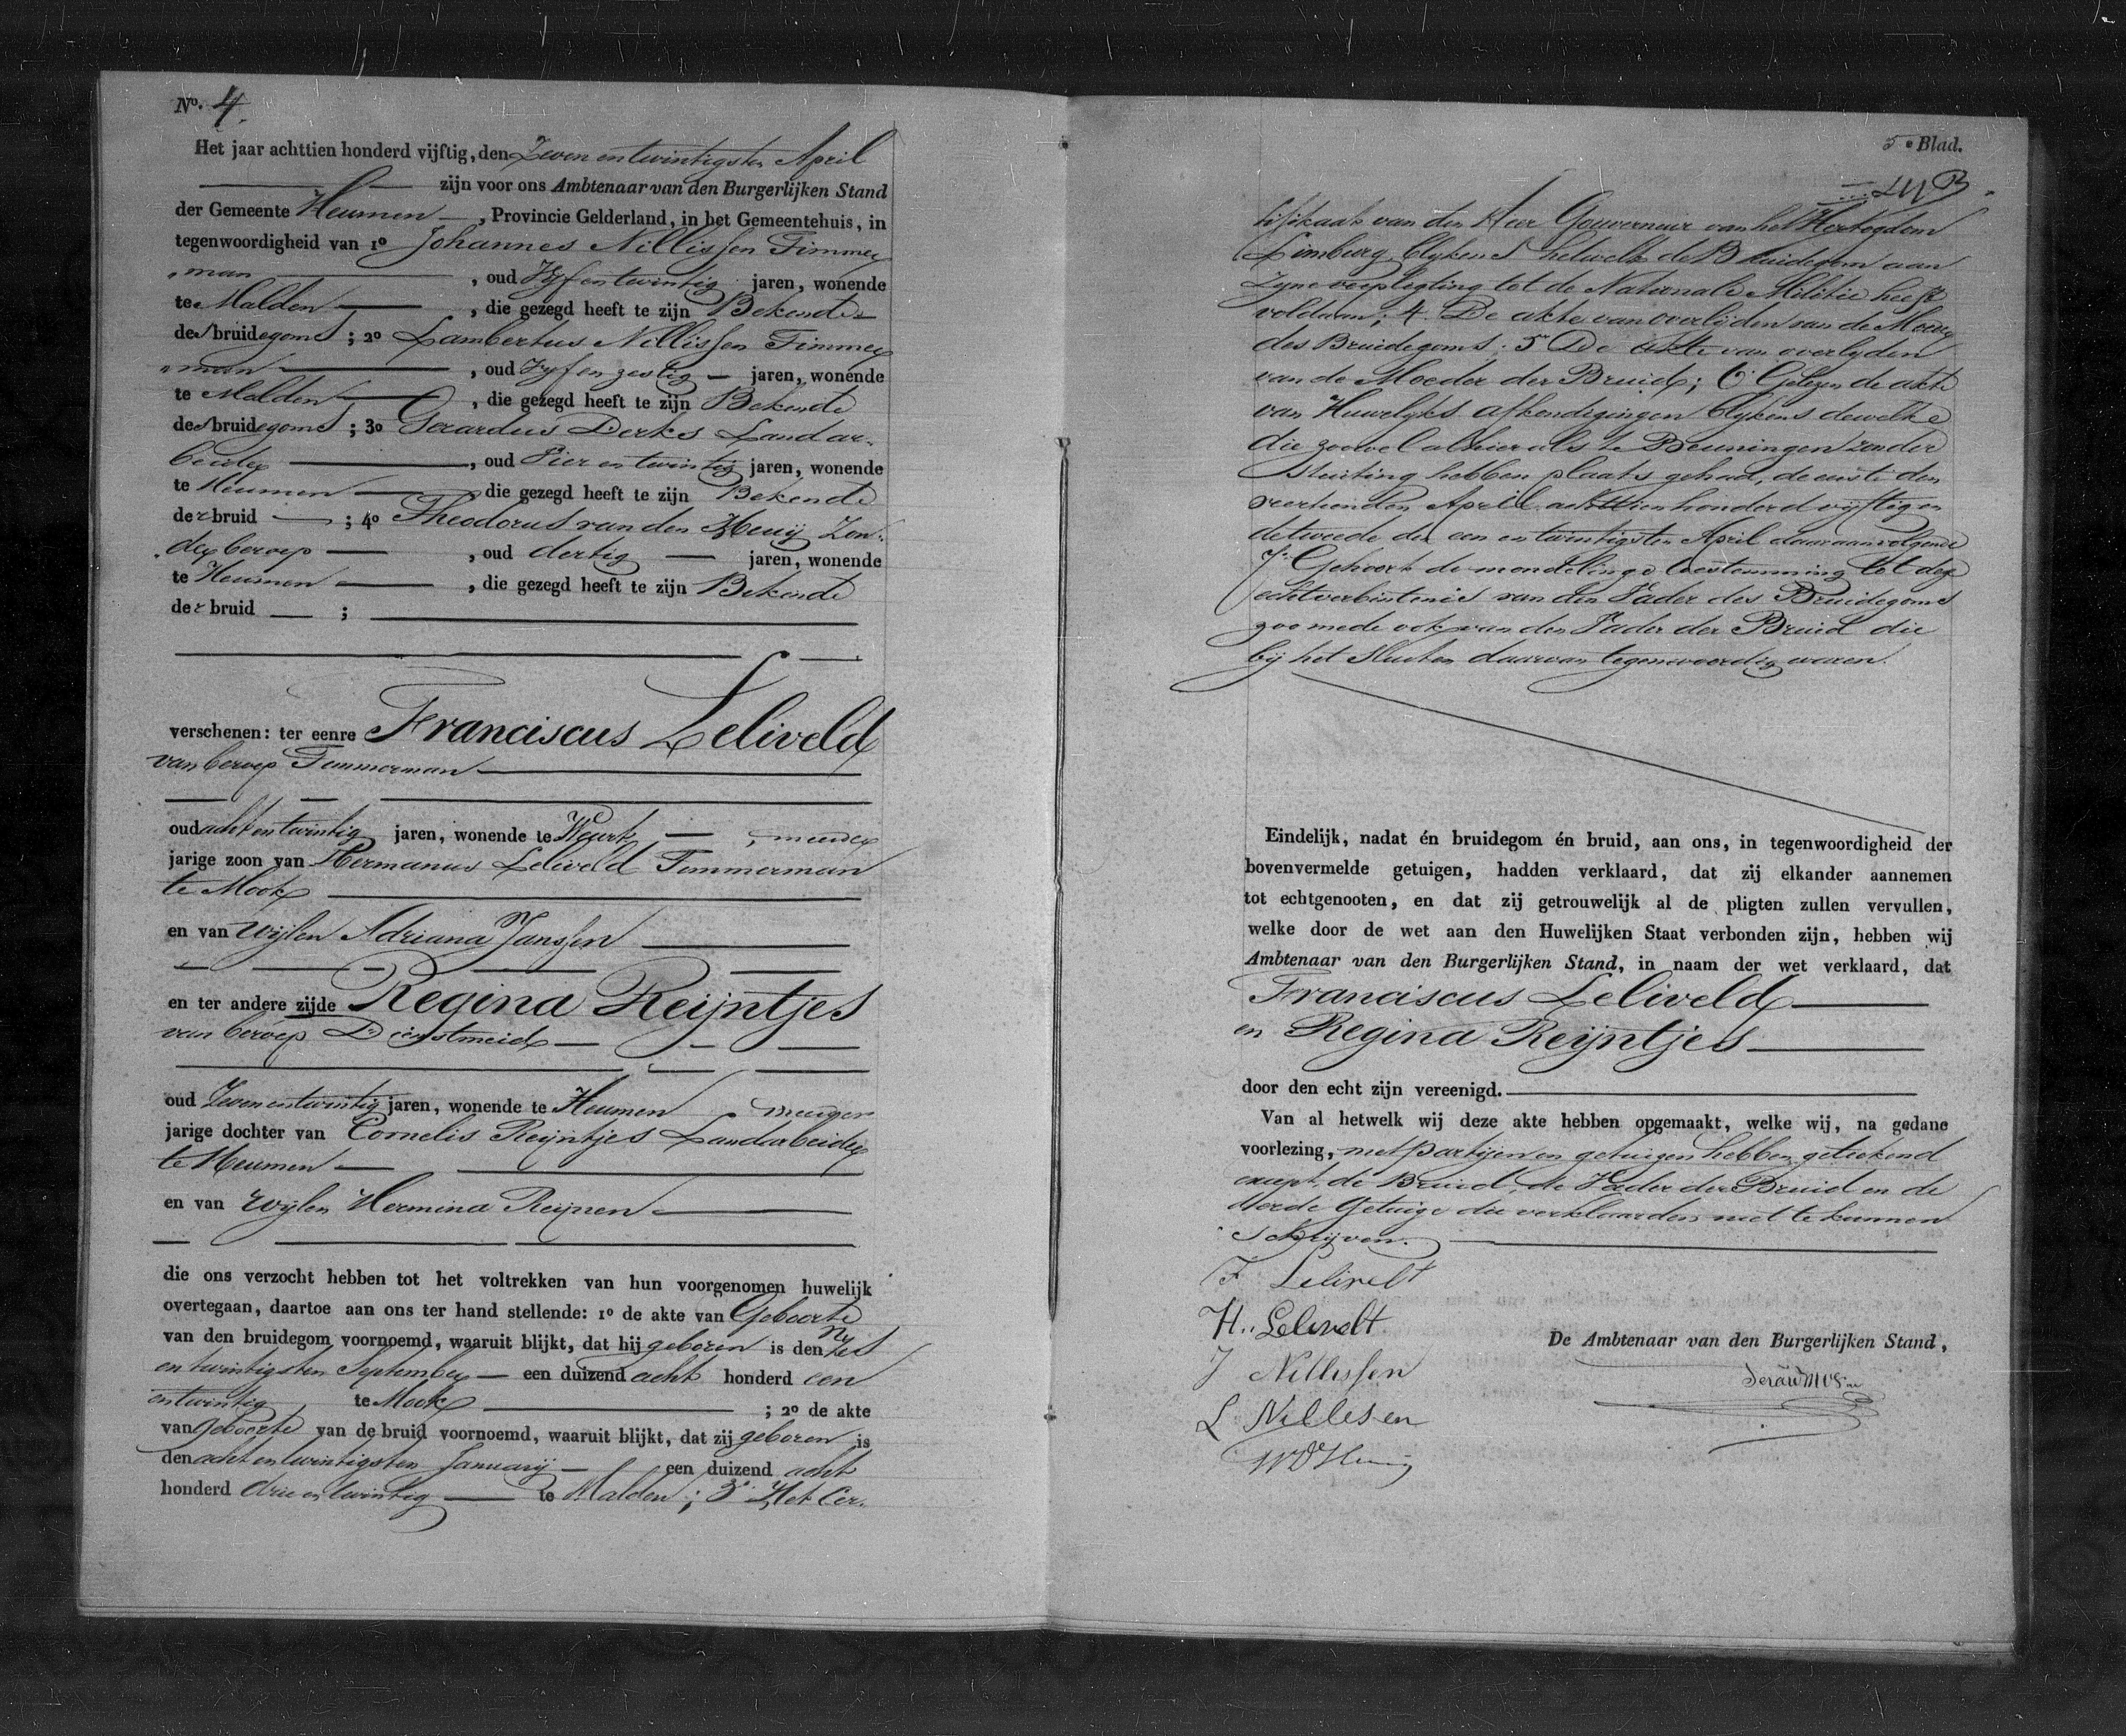 No. 4.
Het jaar achttien honderd vijftig, den Zeven en twintigsten April
zijn voor ons Ambtenaar van den Burgerlijken Stand
der Gemeente Heumen, Provincie Gelderland, in het Gemeentehuis, in
tegenwoordigheid van 1o Johannes Nillissen Timmer
"man, oud Vyf en twintig jaren, wonende
te Malden, die gezegd heeft te zijn Bekende
des bruidegoms; 2o Lambertus Nillissen Timmer
"man, oud Vyf en zestig jaren, wonende
te Malden, die gezegd heeft te zijn Bekende
des bruidegoms; 3o Gerardus Derks Landar-
beider, oud Vier en twintig jaren, wonende
te Heumen, die gezegd heeft te zijn Bekende
der bruid; 4o Theodorus van den Heuij Zon-
der beroep, oud dertig jaren, wonende
te Heumen, die gezegd heeft te zijn Bekende
der bruid;
verschenen: ter eenre Franciscus Leliveld
van beroep Timmerman
oud acht en twintig jaren, wonende te Weurt, meerder
jarige zoon van Hermanus Leliveld Timmerman
te Mook
en van wijlen Adriana Janssen
en ter andere zijde Regina Reijntjes
van beroep Dienstmeid
oud Zeven en twintig jaren, wonende te Heumen meerder
jarige dochter van Cornelis Reijntjes Landarbeider
te Heumen
en van wijlen Hermina Reijnen
die ons verzocht hebben tot het voltrekken van hun voorgenomen huwelijk
overtegaan, daartoe aan ons ter hand stellende: 1o de akte van Geboorte
van den bruidegom voornoemd, waaruit blijkt, dat hij geboren is den zes
en twintigsten September een duizend acht honderd een
en twintig te Mook; 2o de akte
van geboorte van de bruid voornoemd, waaruit blijkt, dat zij geboren is
den acht en twintigsten Januarij een duizend acht
honderd drie en twintig te Malden; 3o Het Cer-
5e Blad.
tifikaat van den Heer Gouverneur van het Hertogdom
Limburg blykens hetwelk de Bruidegom aan
Zyne verpligting tot de Nationale Militie heeft
voldaan; 4. De akte van overlijden van de Moeder
des Bruidegoms; 5o De akte van overlyden
van de Moeder der Bruid; 6o Gelezen de akte
van Huwelyks afkondigingen blykens dewelke
die zoowel alhier als te Beuningen zonder
stuiting hebben plaats gehad, de eerste den
veertienden April achttien honderd vijftig en
de tweede den een en twintigsten April daaraanvolgende
7o Gehoort de mondelinge toestemming tot deze
echtverbintenis van den Vader des Bruidegoms
zoo mede ook van den Vader der Bruid die
bij het sluiten daarvan tegenwoordig waren.
Eindelijk, nadat én bruidegom én bruid, aan ons, in tegenwoordigheid der
bovenvermelde getuigen, hadden verklaard, dat zij elkander aannemen
tot echtgenooten, en dat zij getrouwelijk al de pligten zullen vervullen,
welke door de wet aan den Huwelijken Staat verbonden zijn, hebben wij
Ambtenaar van den Burgerlijken Stand, in naam der wet verklaard, dat
Franciscus Leliveld
en Regina Reijntjes
door den echt zijn vereenigd.
Van al hetwelk wij deze akte hebben opgemaakt, welke wij, na gedane
voorlezing, met partijen en getuigen hebben geteekend
except de Bruid, de Vader der Bruid en de
derde Getuige die verklaarden niet te kunnen
schrijven.
F Lelivelt
H. Lelivelt
J Nillissen
L. Nillesen
De Ambtenaar van den Burgerlijken Stand,